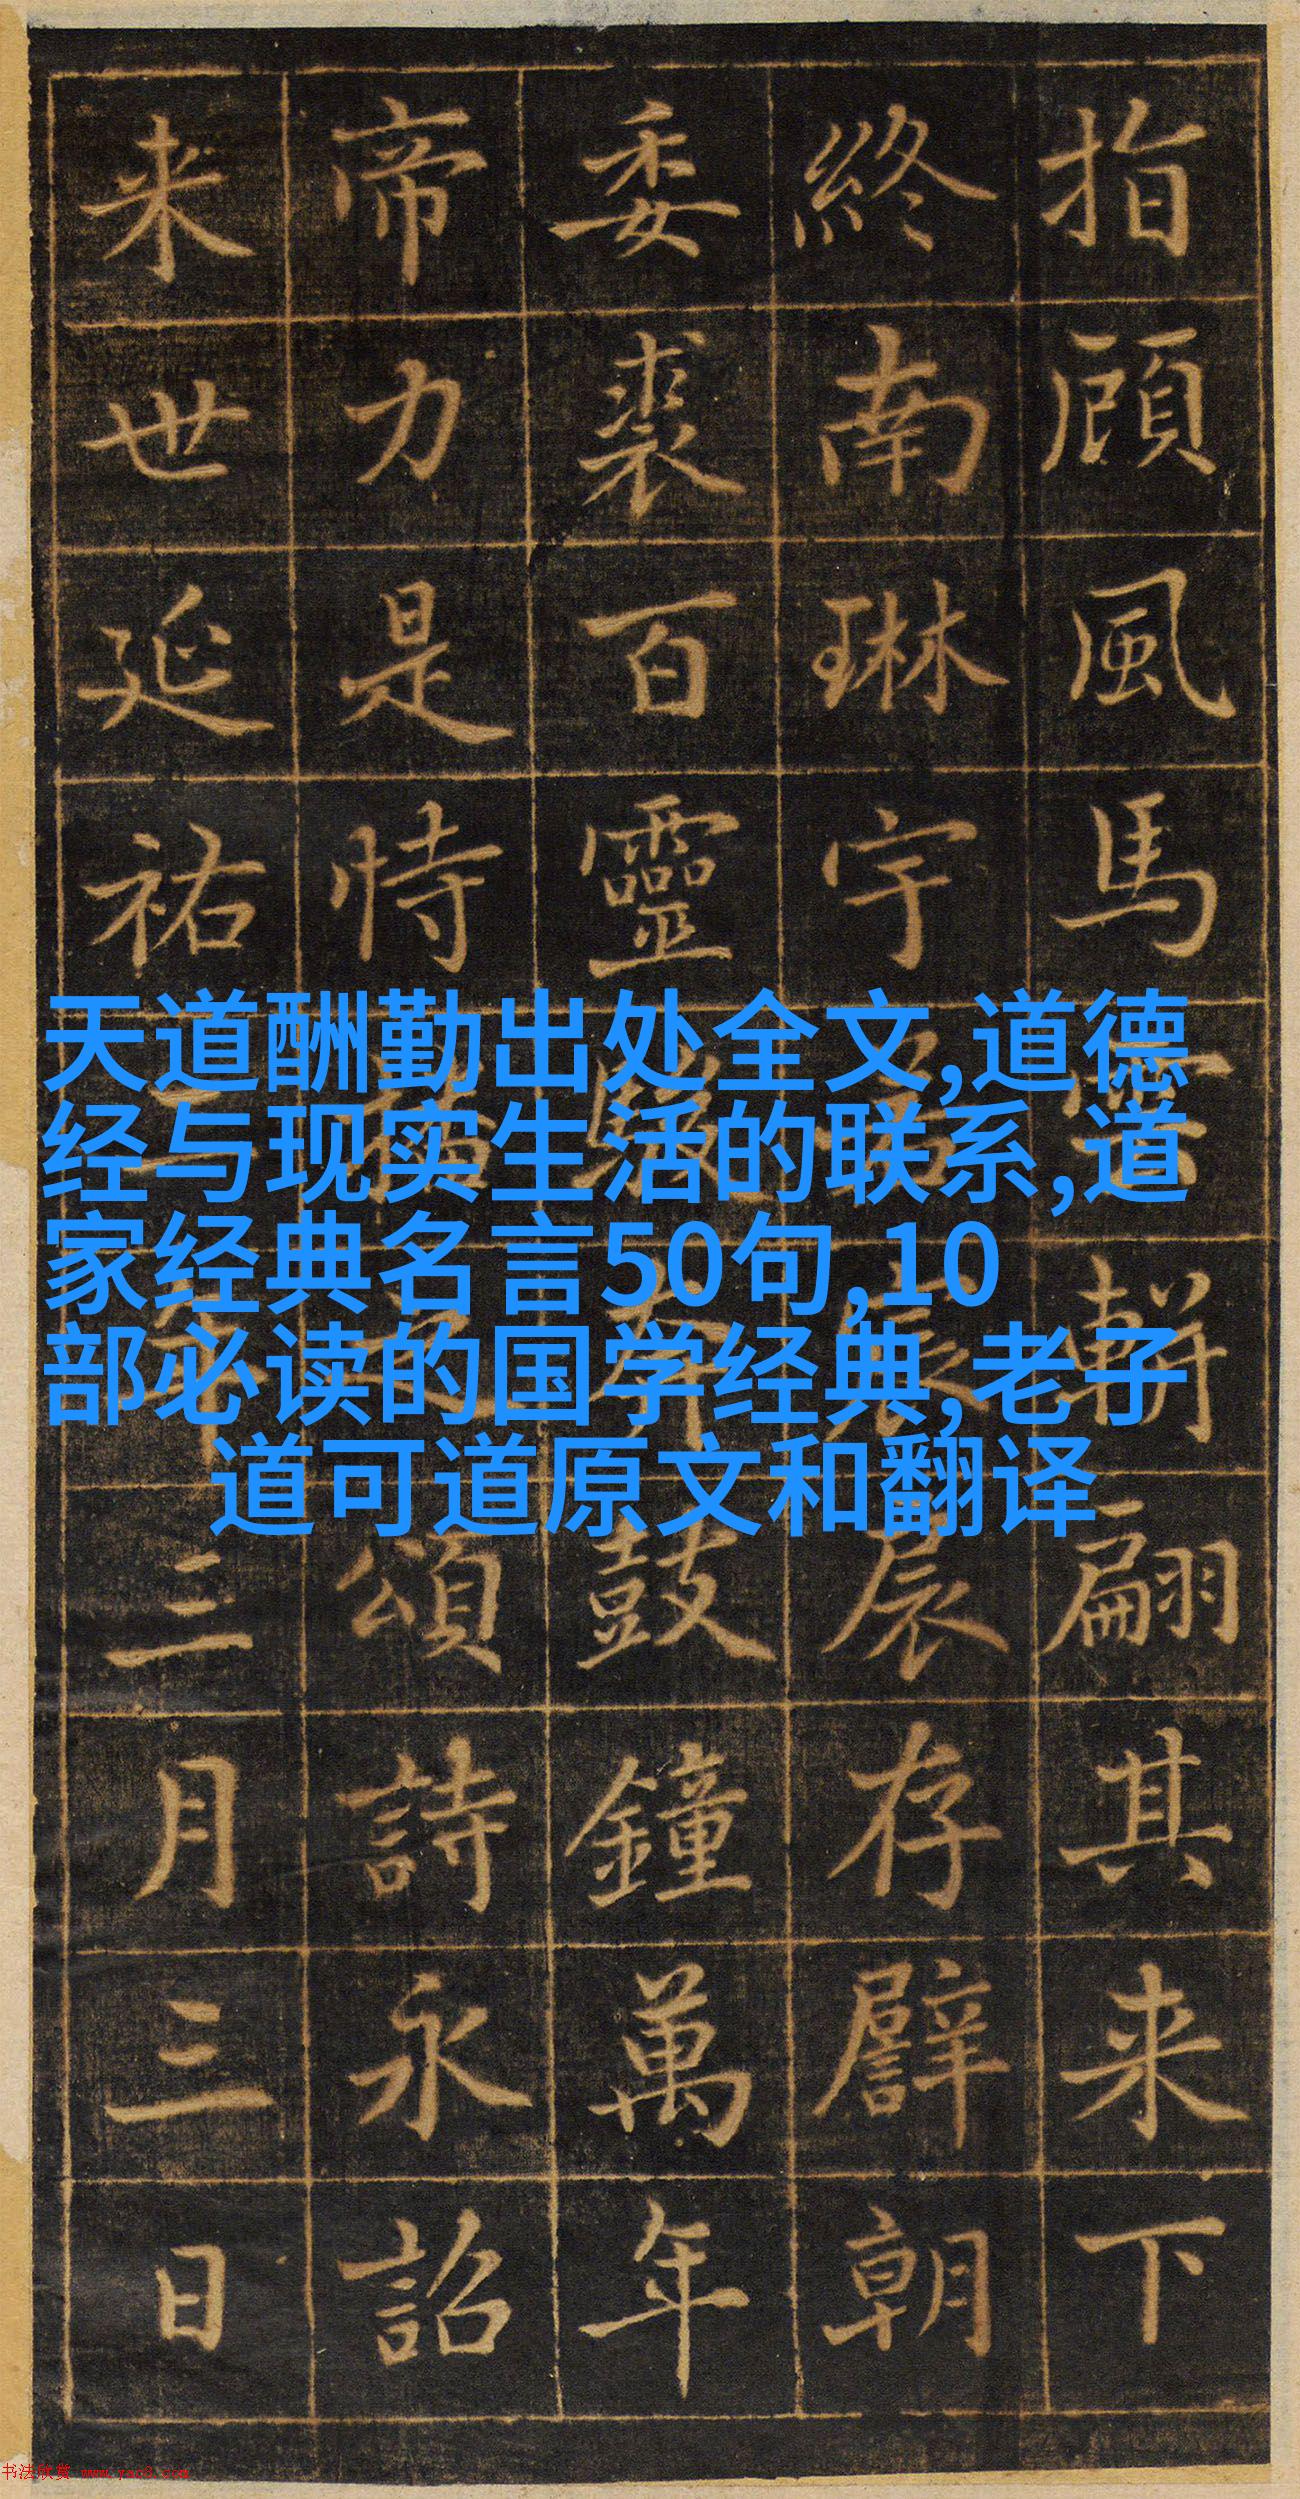 指顧風馬雲軿翩其来下
終南琳宇存朝
委裘百靈奔鼓鐘萬年
帝力是恃頌詩永詔
来世延祐年三月三日
天道酬勤出处全文,道德
经与现实生活的联系,道
家经典名言50句,10
部必读的国学经典,老子
道可道原文和翻译
书法欣赏 www.yac8.com